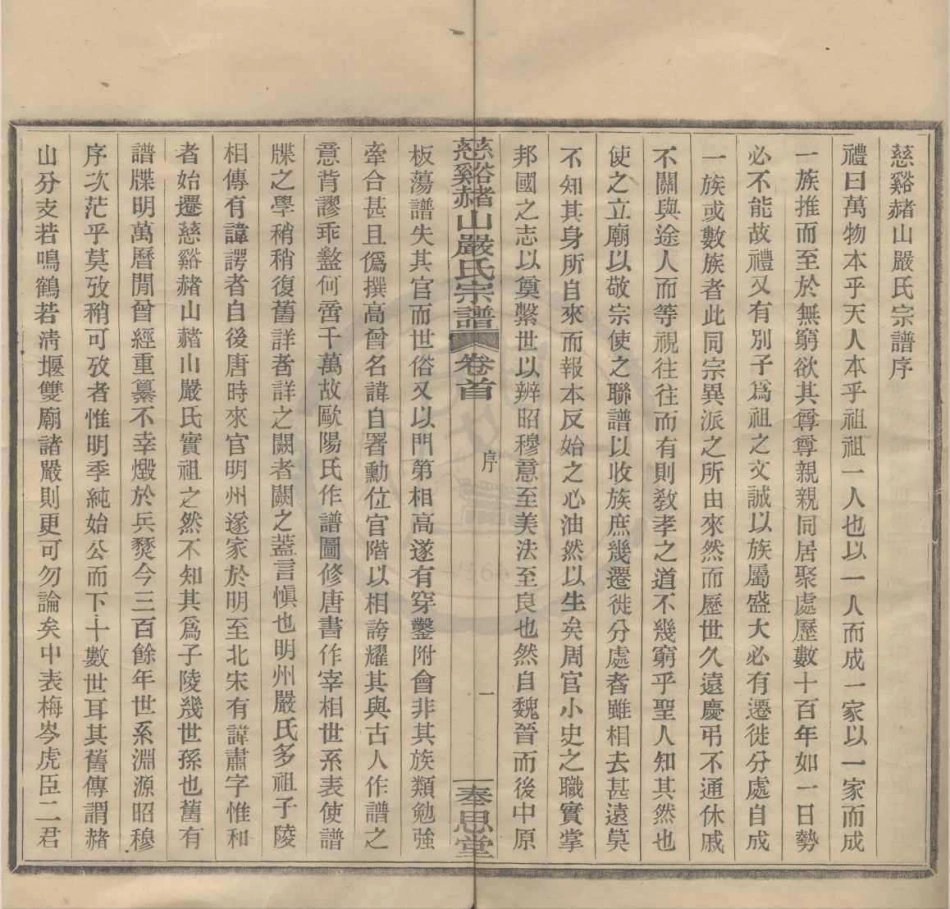 慈谿赭山嚴氏宗譜序
禮曰萬物本乎天人本乎祖祖一人也以一人而成一家以一家而成
一族推而至於無窮欲其尊尊親親同居聚處歷數十百年如一日勢
必不能故禮又有別子爲祖之文誠以族屬盛大必有遷徙分處自成
一族或數族者此同宗異派之所由來然而歷世久遠慶弔不通休戚
不關與途人而等視往往而有則敎孝之道不幾窮乎聖人知其然也
使之立廟以敬宗使之聯譜以收族庶幾遷徙分處者雖相去甚遠莫
不知其身所自來而報本反始之心油然以生矣周官小史之職實掌
邦國之志以奠繫世以辨昭穆意至美法至良也然自魏晉而後中原
慈谿赭山嚴氏宗譜 卷首 序 一 奉思堂
板蕩譜失其官而世俗又以門第相高遂有穿鑿附會非其族類勉強
牽合甚且僞撰高曾名諱自署勳位官階以相誇耀其與古人作譜之
意背謬乖盭何啻千萬故歐陽氏作譜圖修唐書作宰相世系表使譜
牒之學稍稍復舊詳者詳之闕者闕之蓋言愼也明州嚴氏多祖子陵
相傳有諱諤者自後唐時來官明州遂家於明至北宋有諱肅字惟和
者始遷慈谿赭山赭山嚴氏實祖之然不知其爲子陵幾世孫也舊有
譜牒明萬曆閒曾經重纂不幸燬於兵燹今三百餘年世系淵源昭穆
序次茫乎莫攷稍可攷者惟明季純始公而下十數世耳其舊傳謂赭
山分支若鳴鶴若淸堰雙廟諸嚴則更可勿論矣中表梅岑虎臣二君